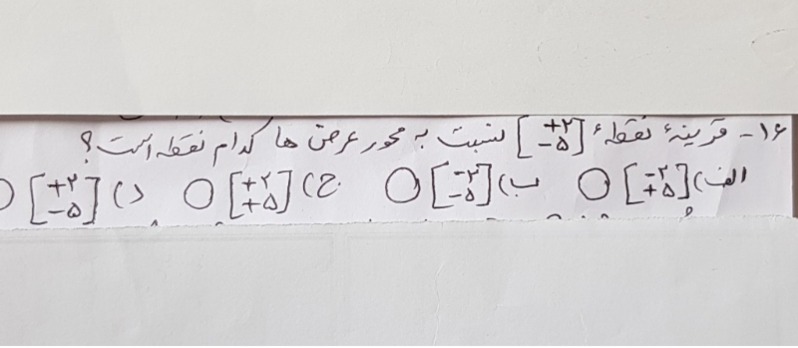 ۱۶- قرینهٔ نقطهٔ [+۲ −۵] نسبت به محور عرض ها کدام نقطه است؟
الف) [−۲ +۵] ب) [−۲ −۵] ج) [+۲ +۵] د) [+۲ −۵]